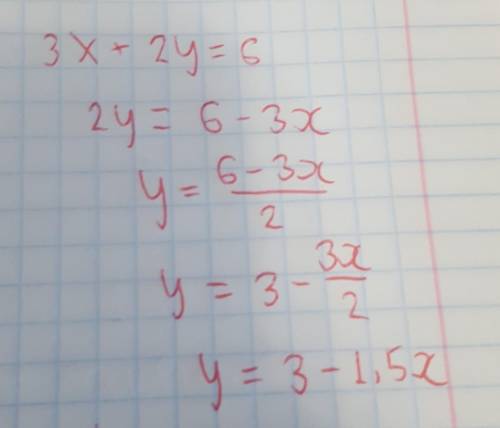 3x + 2y = 6
2y = 6 - 3x
y = (6 - 3x)/2
y = 3 - 3x/2
y = 3 - 1,5x